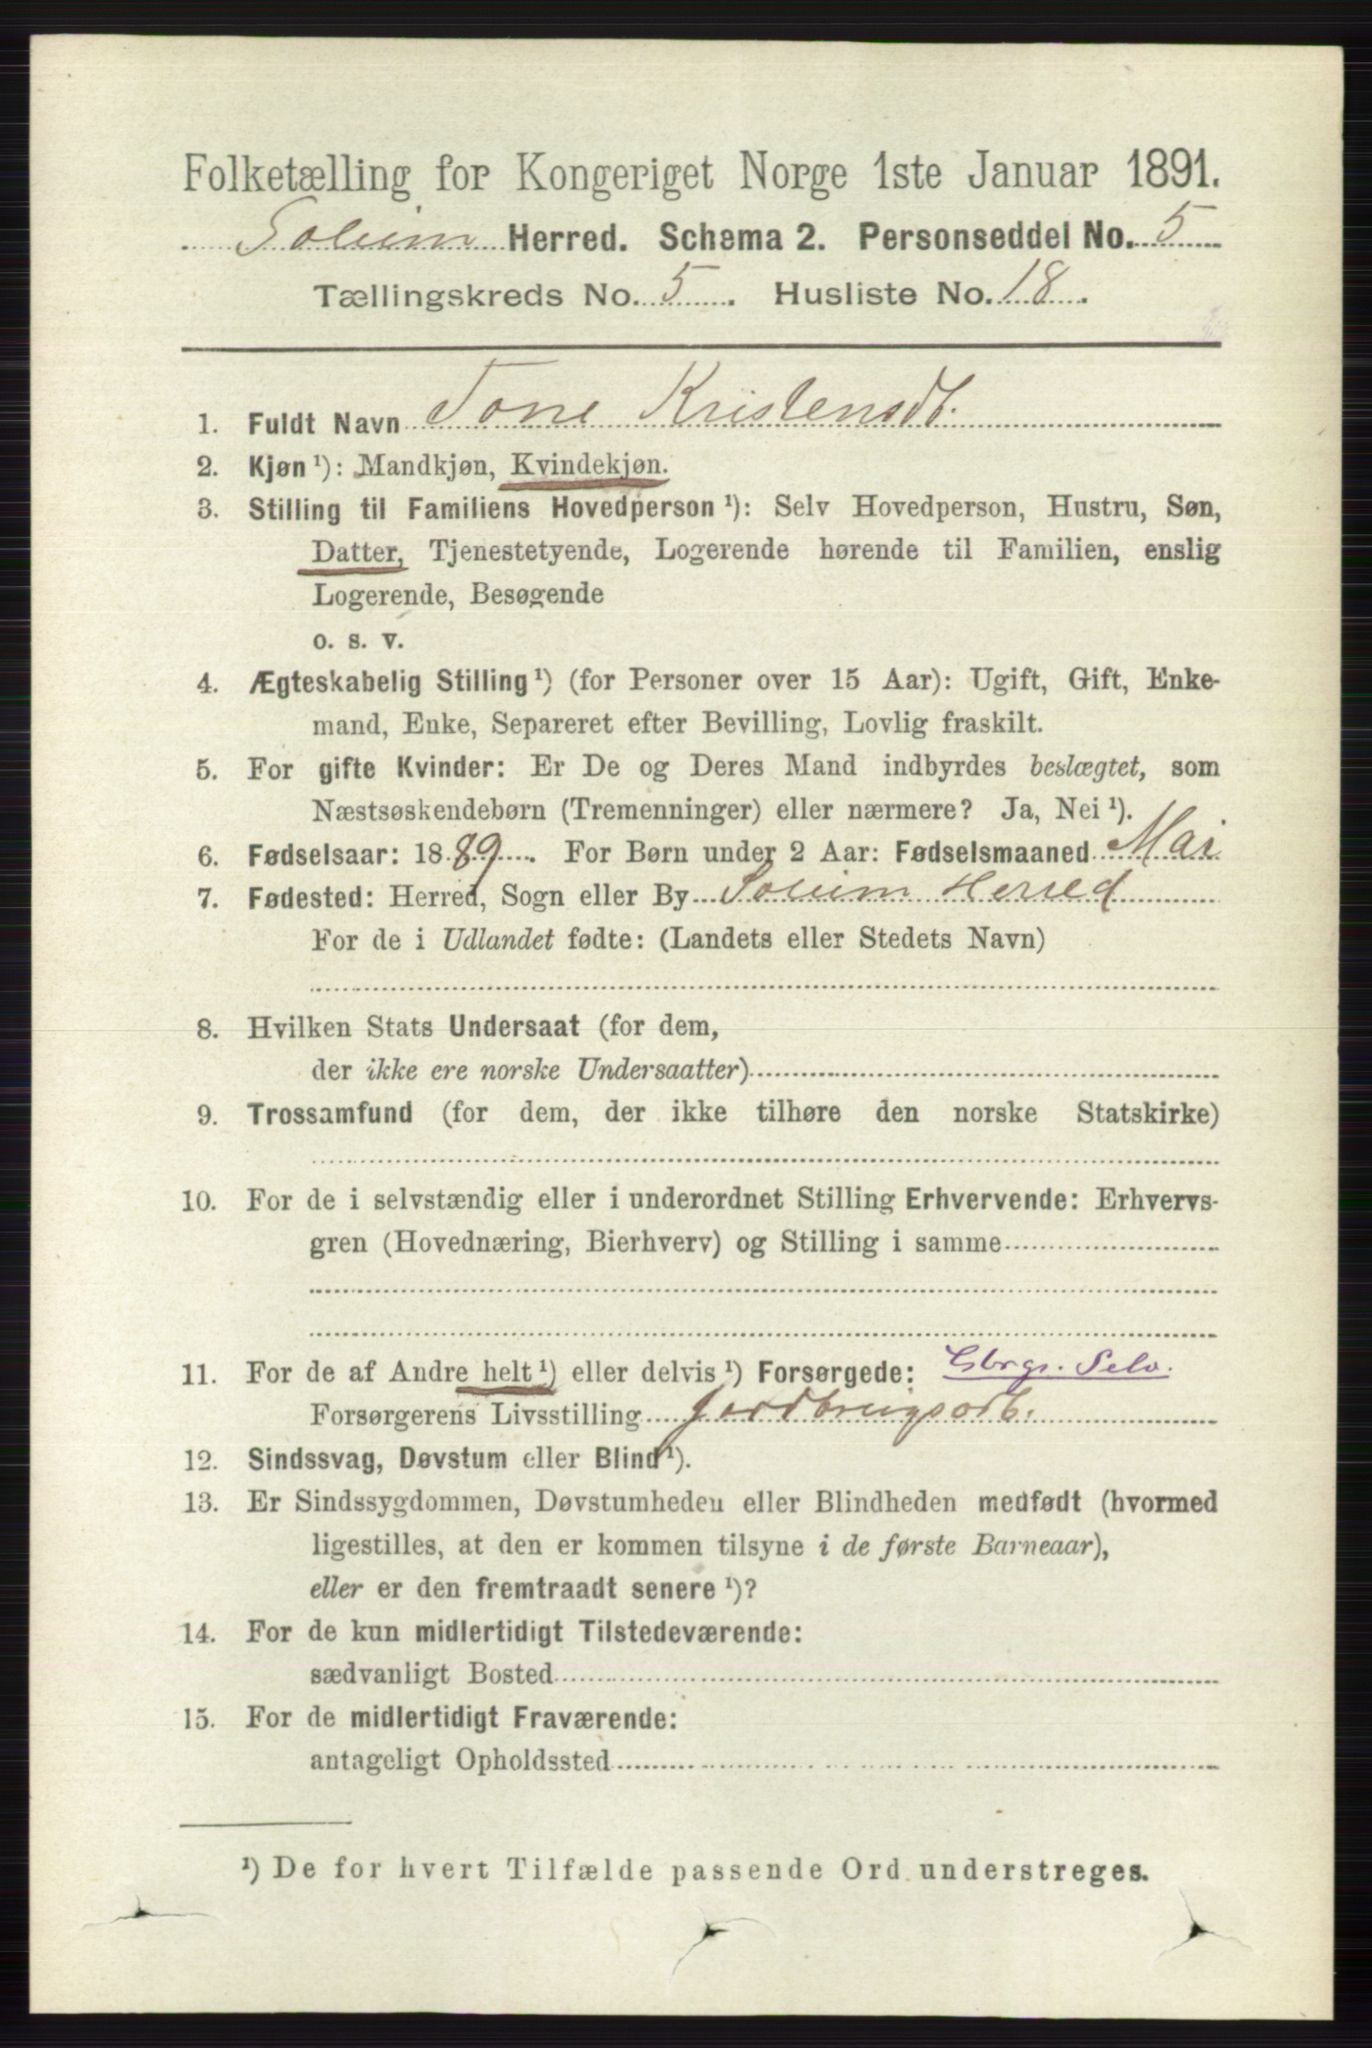 Folketælling for Kongeriget Norge 1ste Januar 1891.
Solum Herred. Schema 2. Personseddel No. 5
Tællingskreds No. 5. Husliste No. 18.
1. Fuldt Navn Tone Kristensdt.
2. Kjøn ¹): Mandkjøn, Kvindekjøn.
3. Stilling til Familiens Hovedperson ¹): Selv Hovedperson, Hustru, Søn,
Datter, Tjenestetyende, Logerende hørende til Familien, enslig
Logerende, Besøgende
o. s. v.
4. Ægteskabelig Stilling ¹) (for Personer over 15 Aar): Ugift, Gift, Enke-
mand, Enke, Separeret efter Bevilling, Lovlig fraskilt.
5. For gifte Kvinder: Er De og Deres Mand indbyrdes beslægtet, som
Næstsøskendebørn (Tremenninger) eller nærmere? Ja, Nei ¹).
6. Fødselsaar: 1889. For Børn under 2 Aar: Fødselsmaaned Mai
7. Fødested: Herred, Sogn eller By Solum Herred
For de i Udlandet fødte: (Landets eller Stedets Navn)
8. Hvilken Stats Undersaat (for dem,
der ikke ere norske Undersaatter)
9. Trossamfund (for dem, der ikke tilhøre den norske Statskirke)
10. For de i selvstændig eller i underordnet Stilling Erhvervende: Erhvervs-
gren (Hovednæring, Bierhverv) og Stilling i samme
11. For de af Andre helt ¹) eller delvis ¹) Forsørgede: Gbrgr. Selv.
Forsørgerens Livsstilling
12. Sindssvag, Døvstum eller Blind ¹).
13. Er Sindssygdommen, Døvstumheden eller Blindheden medfødt (hvormed
ligestilles, at den er kommen tilsyne i de første Barneaar),
eller er den fremtraadt senere ¹)?
14. For de kun midlertidigt Tilstedeværende:
sædvanligt Bosted
15. For de midlertidigt Fraværende:
antageligt Opholdssted
¹) De for hvert Tilfælde passende Ord understreges.